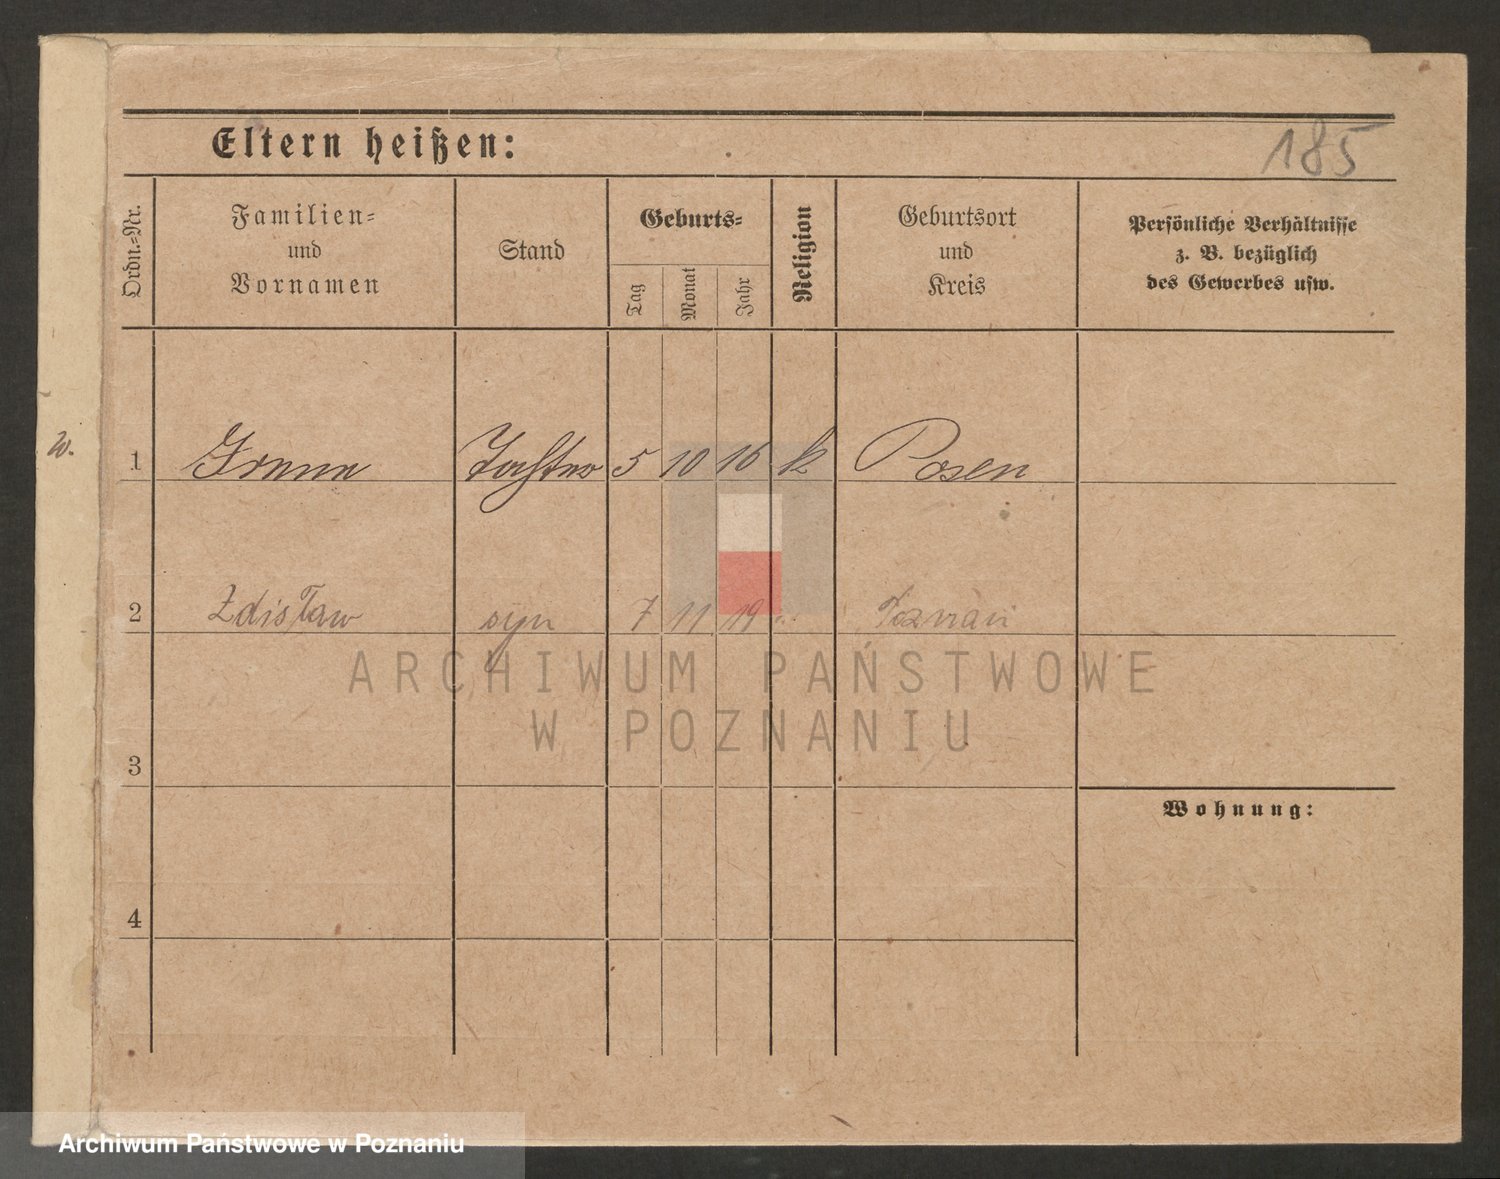 185
Eltern heißen:
Ordn.=Nr.
Familien=
und
Vornamen
Stand
Geburts=
Tag
Monat
Jahr
Religion
Geburtsort
und
Kreis
Persönliche Verhältnisse
z. B. bezüglich
des Gewerbes usw.
w.
1 Irene Tochter 5 10 16 k Posen
2 Zdisław syn 7 11 19 Poznań
ARCHIWUM PAŃSTWOWE
W POZNANIU
3
Wohnung:
4
Archiwum Państwowe w Poznaniu